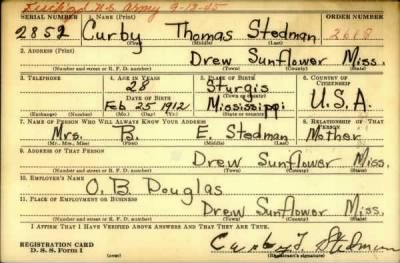 Disch'gd U.S. Army 9-12-45
SERIAL NUMBER 1. NAME (Print) ORDER NUMBER
2852 Curby Thomas Stedman 2618
(First) (Middle) (Last)
2. ADDRESS (Print)
Drew Sunflower Miss.
(Number and street or R. F. D. number) (Town) (County) (State)
3. TELEPHONE 4. AGE IN YEARS 5. PLACE OF BIRTH 6. COUNTRY OF CITIZENSHIP
28 Sturgis
DATE OF BIRTH (Town or county)
Feb 25 1912 Mississippi U.S.A.
(Exchange) (Number) (Mo.) (Day) (Yr.) (State or country)
7. NAME OF PERSON WHO WILL ALWAYS KNOW YOUR ADDRESS 8. RELATIONSHIP OF THAT PERSON
Mrs. B. E. Stedman Mother
(Mr., Mrs., Miss) (First) (Middle) (Last)
9. ADDRESS OF THAT PERSON
Drew Sunflower Miss.
(Number and street or R. F. D. number) (Town) (County) (State)
10. EMPLOYER'S NAME
O. B. Douglas
11. PLACE OF EMPLOYMENT OR BUSINESS
Drew Sunflower Miss.
(Number and street or R. F. D. number) (Town) (County) (State)
I AFFIRM THAT I HAVE VERIFIED ABOVE ANSWERS AND THAT THEY ARE TRUE.
REGISTRATION CARD
D. S. S. Form 1
Curby T. Stedman
(Registrant's signature)